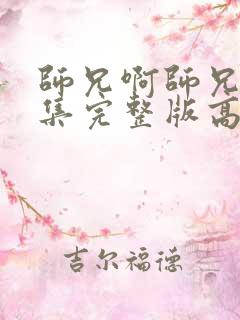 師兄啊師兄
集完整版高
吉尔福德